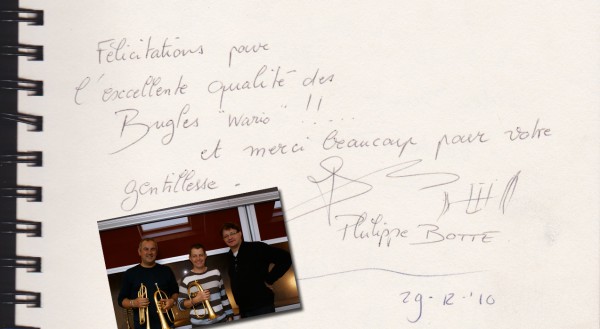 Félicitations pour
l'excellente qualité des
Bugles "Wario" !! .....
et merci beaucoup pour votre
gentillesse.
Philippe BOTTE
29-12-'10